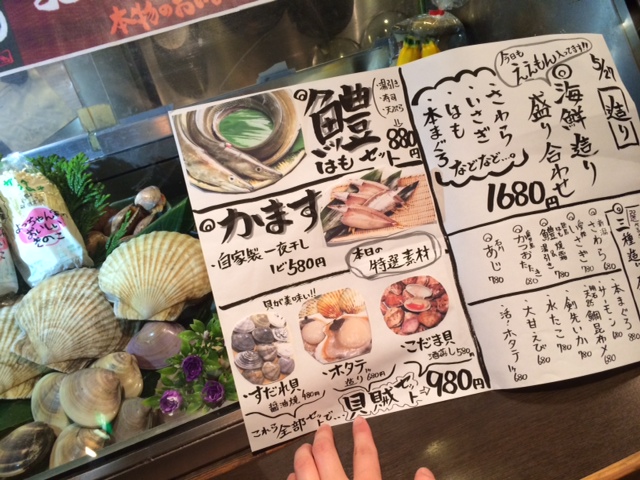 本物のおい
5/27
今日も
ええもん入ってます!!
造り
◎海鮮造り
盛り合わせ
・さわら
・いさき
・はも
・本まぐろ
などなど…
1680円
鱧
・湯引き
・寿司
・天ぷら
はもセット
880円
かます
・自家製一夜干し
580円
本日の
特選素材
貝が美味い!!
・すだれ貝
醤油焼 480円
・ホタテ
造り 680円
・こだま貝
酒蒸し 580円
これら全部セットで…
貝賊セット
980円
二種造り
さわら 780
いさき 780
鱧 湯引き 780
かつおたたき 780
あじ 680
本まぐろ
サーモン
鯛昆布〆
剣先いか 780
水たこ 680
大甘えび 680
活ホタテ 680